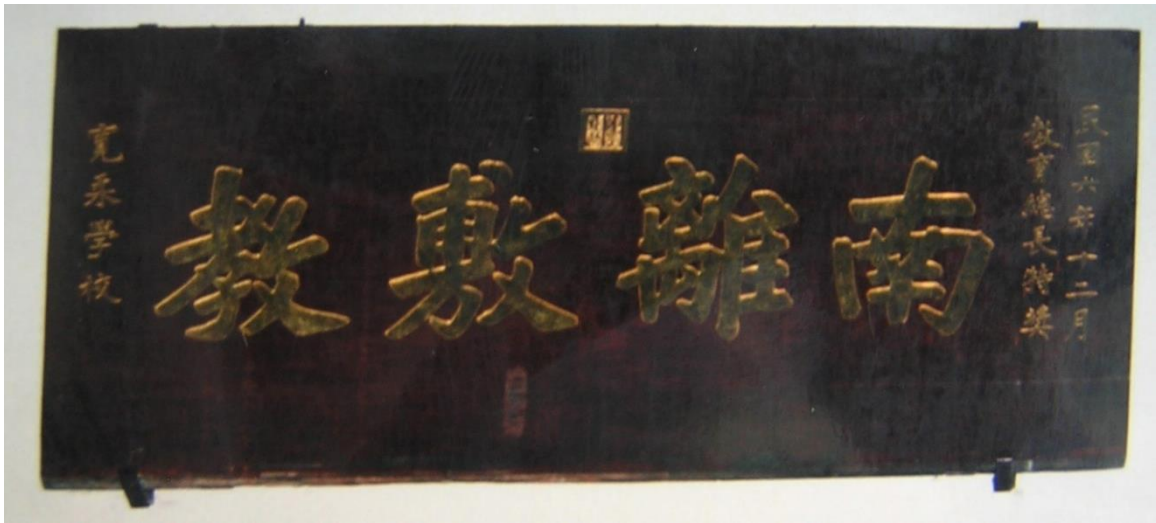 民國六年十二月
教育總長特奬
南離敷教
寬柔學校